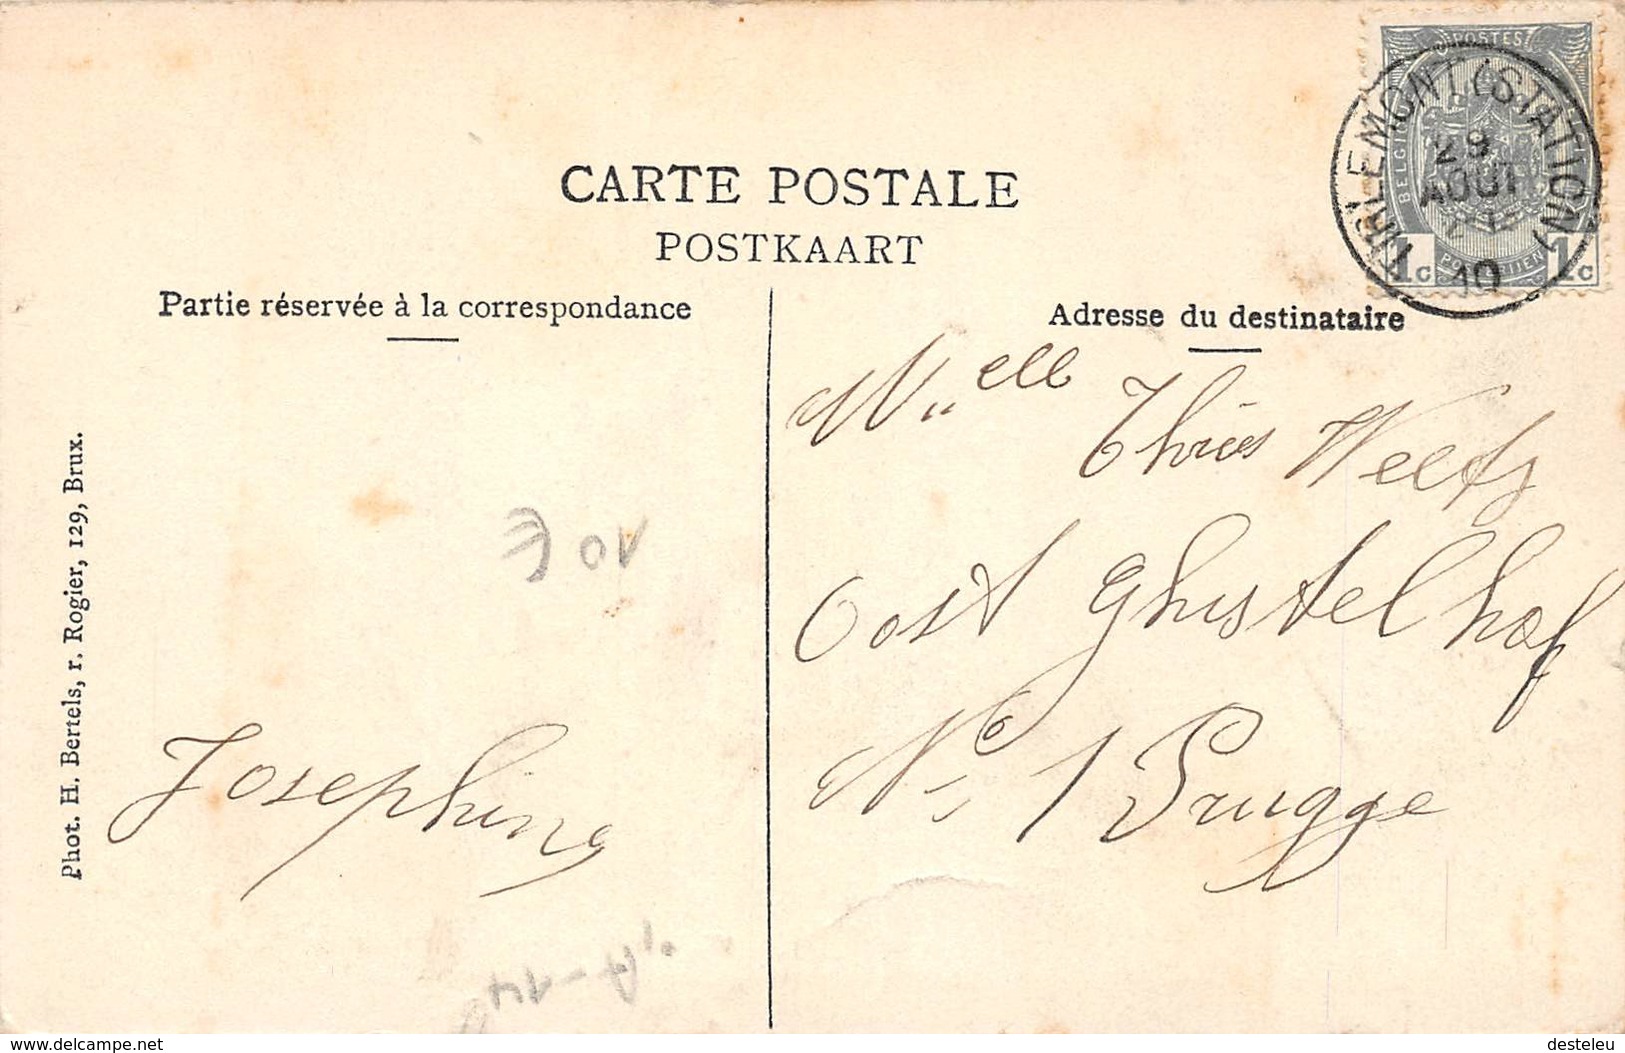 CARTE POSTALE
POSTKAART
Partie réservée à la correspondance
Adresse du destinataire
POSTES
BELGIQUE
1c
1c
TIRLEMONT (STATION)
29
AOUT
10
Mlle
Weets
Oost Ghistelhof
No 1 Brugge
Josephine
Phot. H. Bertels, r. Rogier, 129, Brux.
https://www.delcampe.net
desteleu